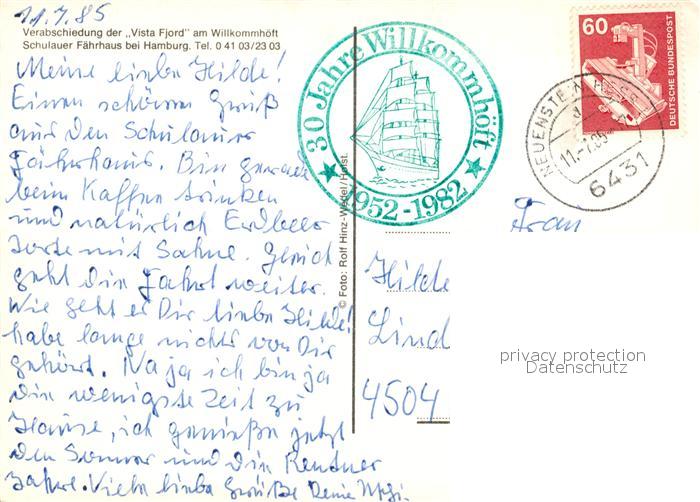 11.7.85
Verabschiedung der „Vista Fjord" am Willkommhöft
Schulauer Fährhaus bei Hamburg. Tel. 0 41 03/23 03
Meine liebe Hilde!
Einen schönen Gruß
aus den Schulauer
Fährhaus. Bin gerade
beim Kaffee trinken
und natürlich Erdbeer
torte mit Sahne. Gleich
geht die Fahrt weiter.
Wie geht es Dir liebe Hilde!
habe lange nichts von Dir
gehört. Na ja ich bin ja
die wenigste Zeit zu
Hause, ich genieße jetzt
den Sommer und die Rentner
Jahre. Viele liebe Grüße Deine
© Foto: Rolf Hinz-Wedel/Holst.
30 Jahre Willkommhöft
1952-1982
60
DEUTSCHE BUNDESPOST
NEUENSTEIN
11.-7.85
6431
Frau
Hilde
Lind
4504
privacy protection
Datenschutz